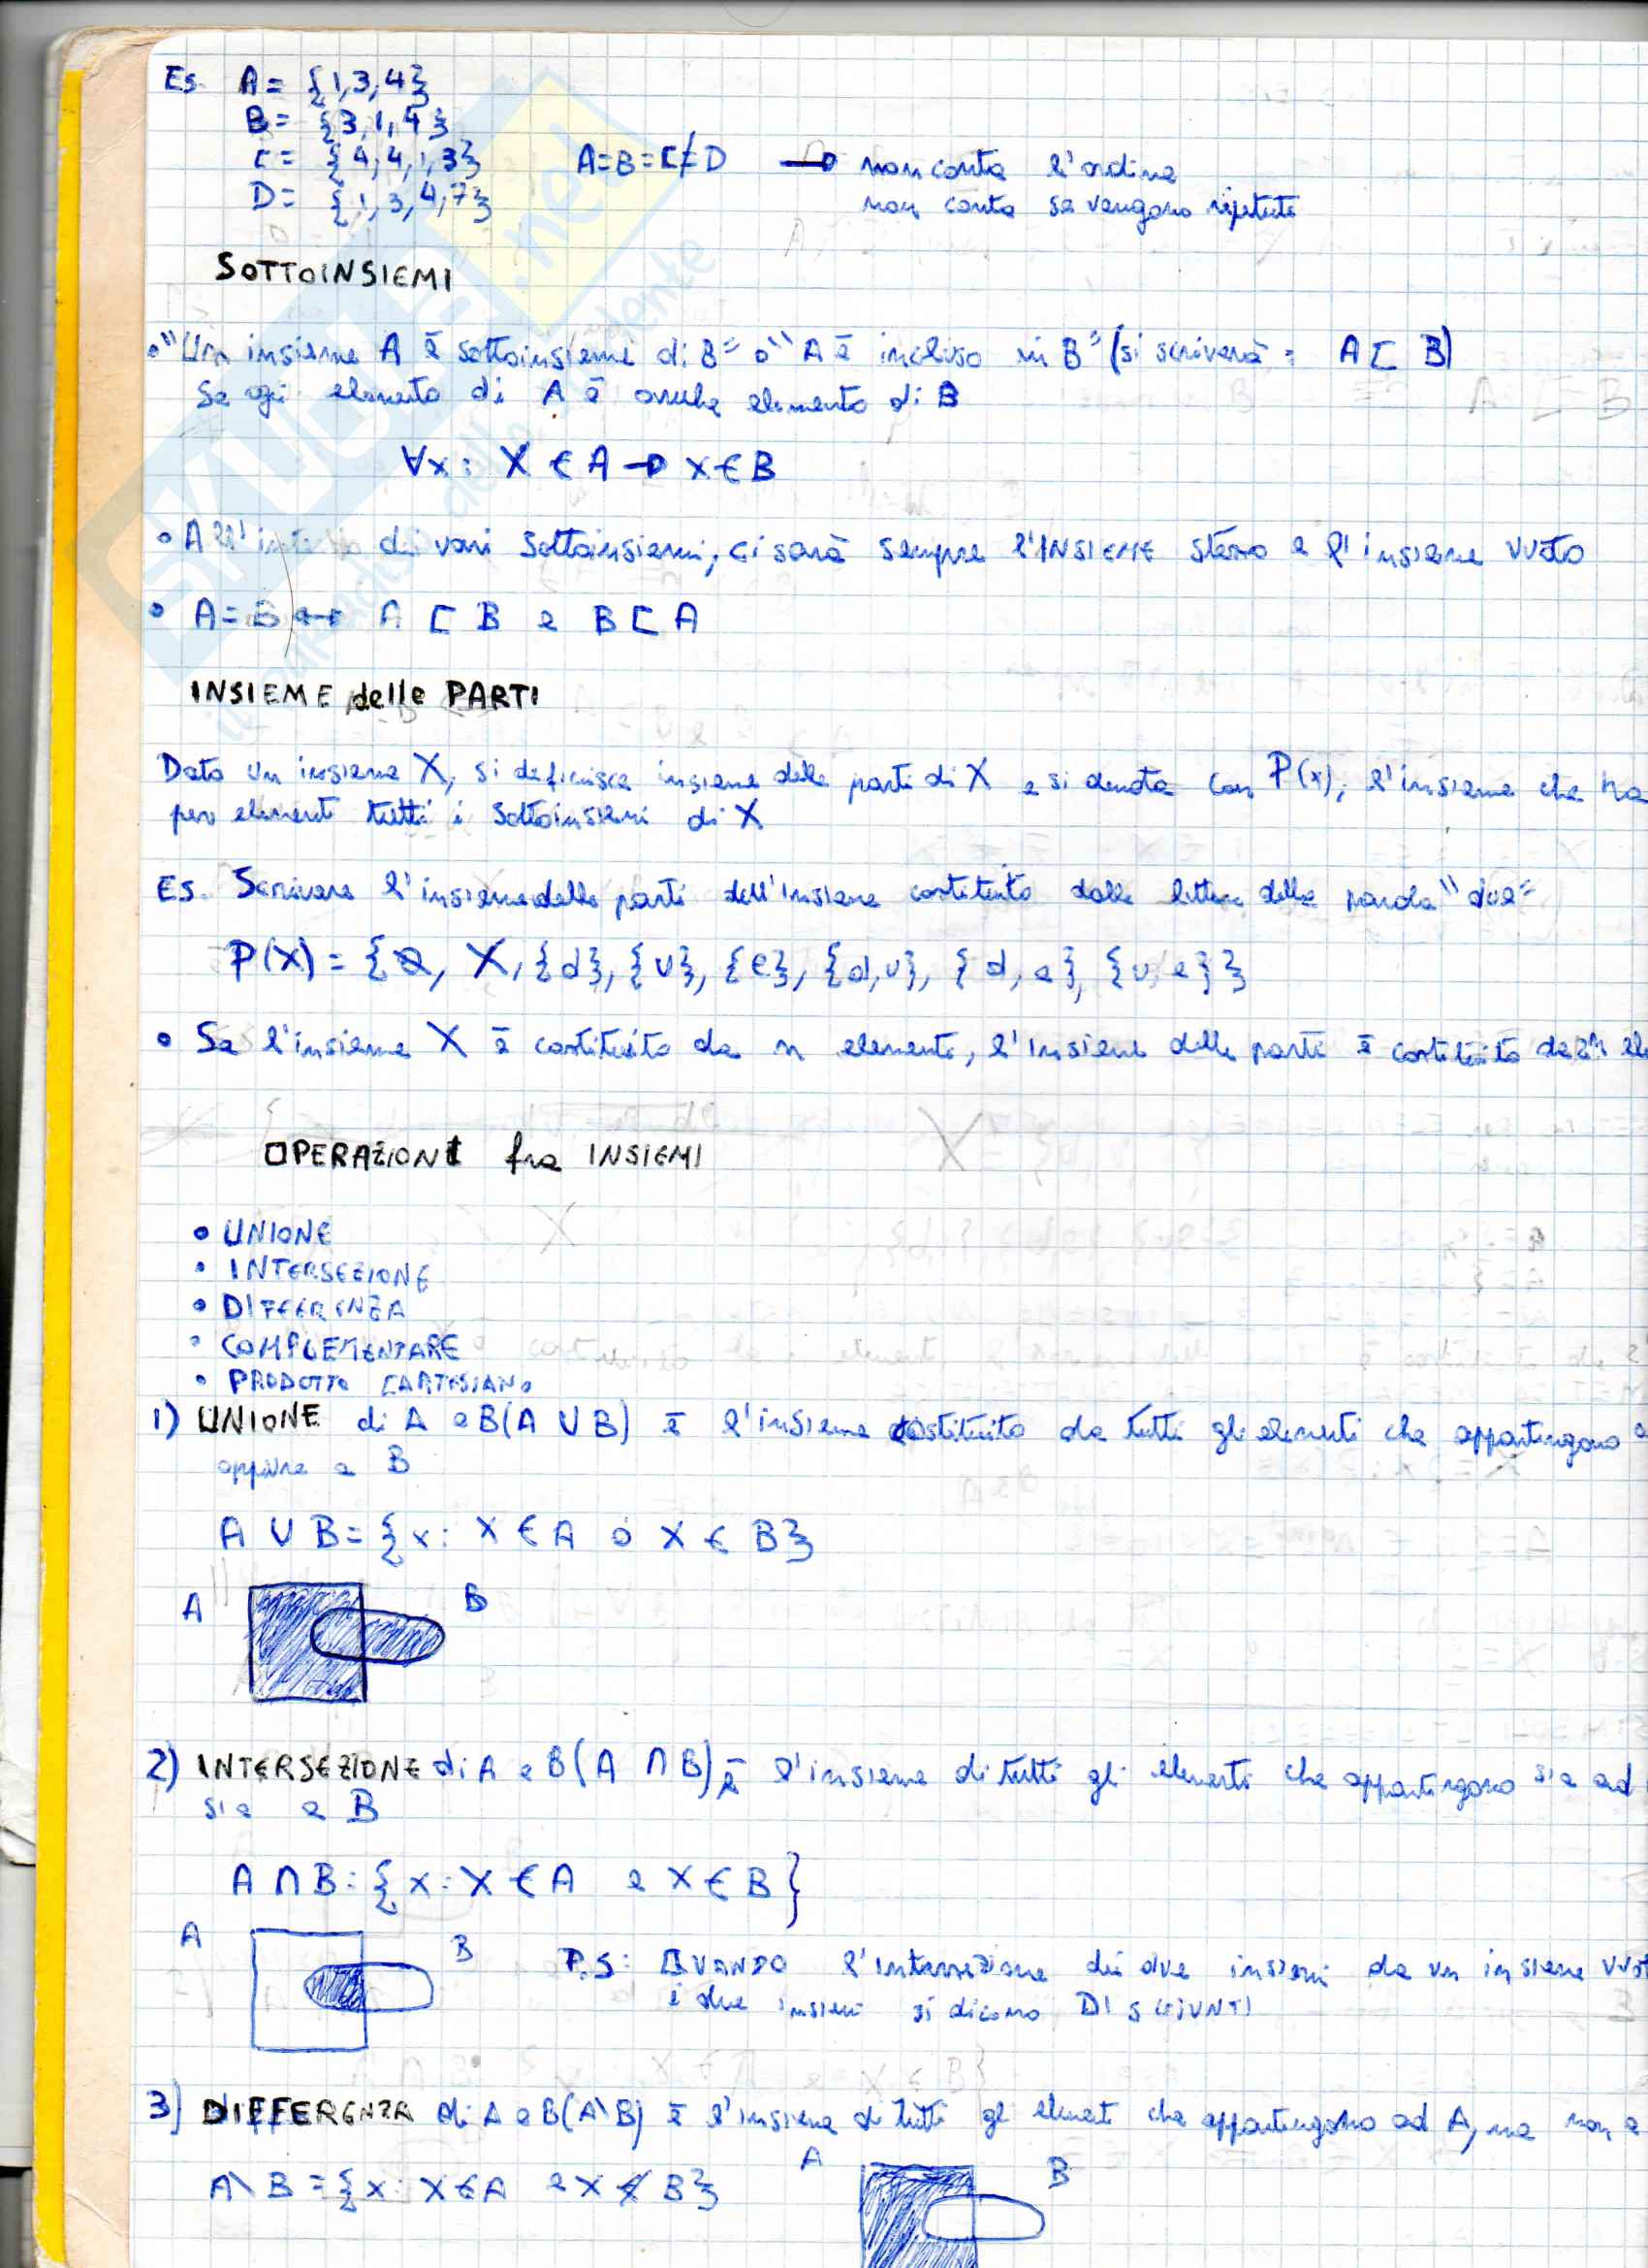 Es. A = {1,3,4}
B = {3,1,4}
C = {4,4,1,3} A=B=C≠D → non conta l'ordine
D = {1,3,4,7} non conta se vengono ripetuti
SOTTOINSIEMI
• "Un insieme A è sottoinsieme di B" o "A è incluso in B" (si scriverà: A ⊏ B)
se ogni elemento di A è anche elemento di B
∀x: X ∈ A → x ∈ B
• All'interno dei vari sottoinsiemi, ci sarà sempre l'INSIEME stesso e l'insieme vuoto
• A=B ↔ A ⊏ B e B ⊏ A
INSIEME delle PARTI
Dato un insieme X, si definisce insieme delle parti di X e si denota con P(x), l'insieme che ha
per elementi tutti i sottoinsiemi di X
Es. Scrivere l'insieme delle parti dell'insieme costituito dalle lettere della parola "due"
P(X) = {∅, X, {d}, {u}, {e}, {d,u}, {d,e}, {u,e}}
• Se l'insieme X è costituito da n elementi, l'insieme delle parti è costituito da 2ⁿ ele
OPERAZIONI fra INSIEMI
• UNIONE
• INTERSEZIONE
• DIFFERENZA
• COMPLEMENTARE
• PRODOTTO CARTESIANO
1) UNIONE di A e B (A ∪ B) è l'insieme costituito da tutti gli elementi che appartengono a
oppure a B
A ∪ B = {x: x ∈ A o x ∈ B}
A B
2) INTERSEZIONE di A e B (A ∩ B) è l'insieme di tutti gli elementi che appartengono sia ad
sia a B
A ∩ B = {x: x ∈ A e x ∈ B}
A B P.S: QUANDO l'intersezione di due insiemi da un insieme vuot
i due insiemi si dicono DISGIUNTI
3) DIFFERENZA di A e B (A\B) è l'insieme di tutti gli elementi che appartengono ad A, ma non a
A\B = {x: x ∈ A e x ∉ B} A B
SKUOLA.net